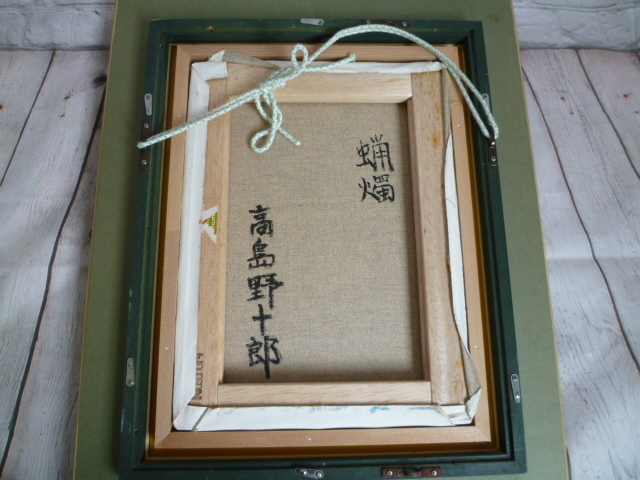 蝋燭
高島野十郎